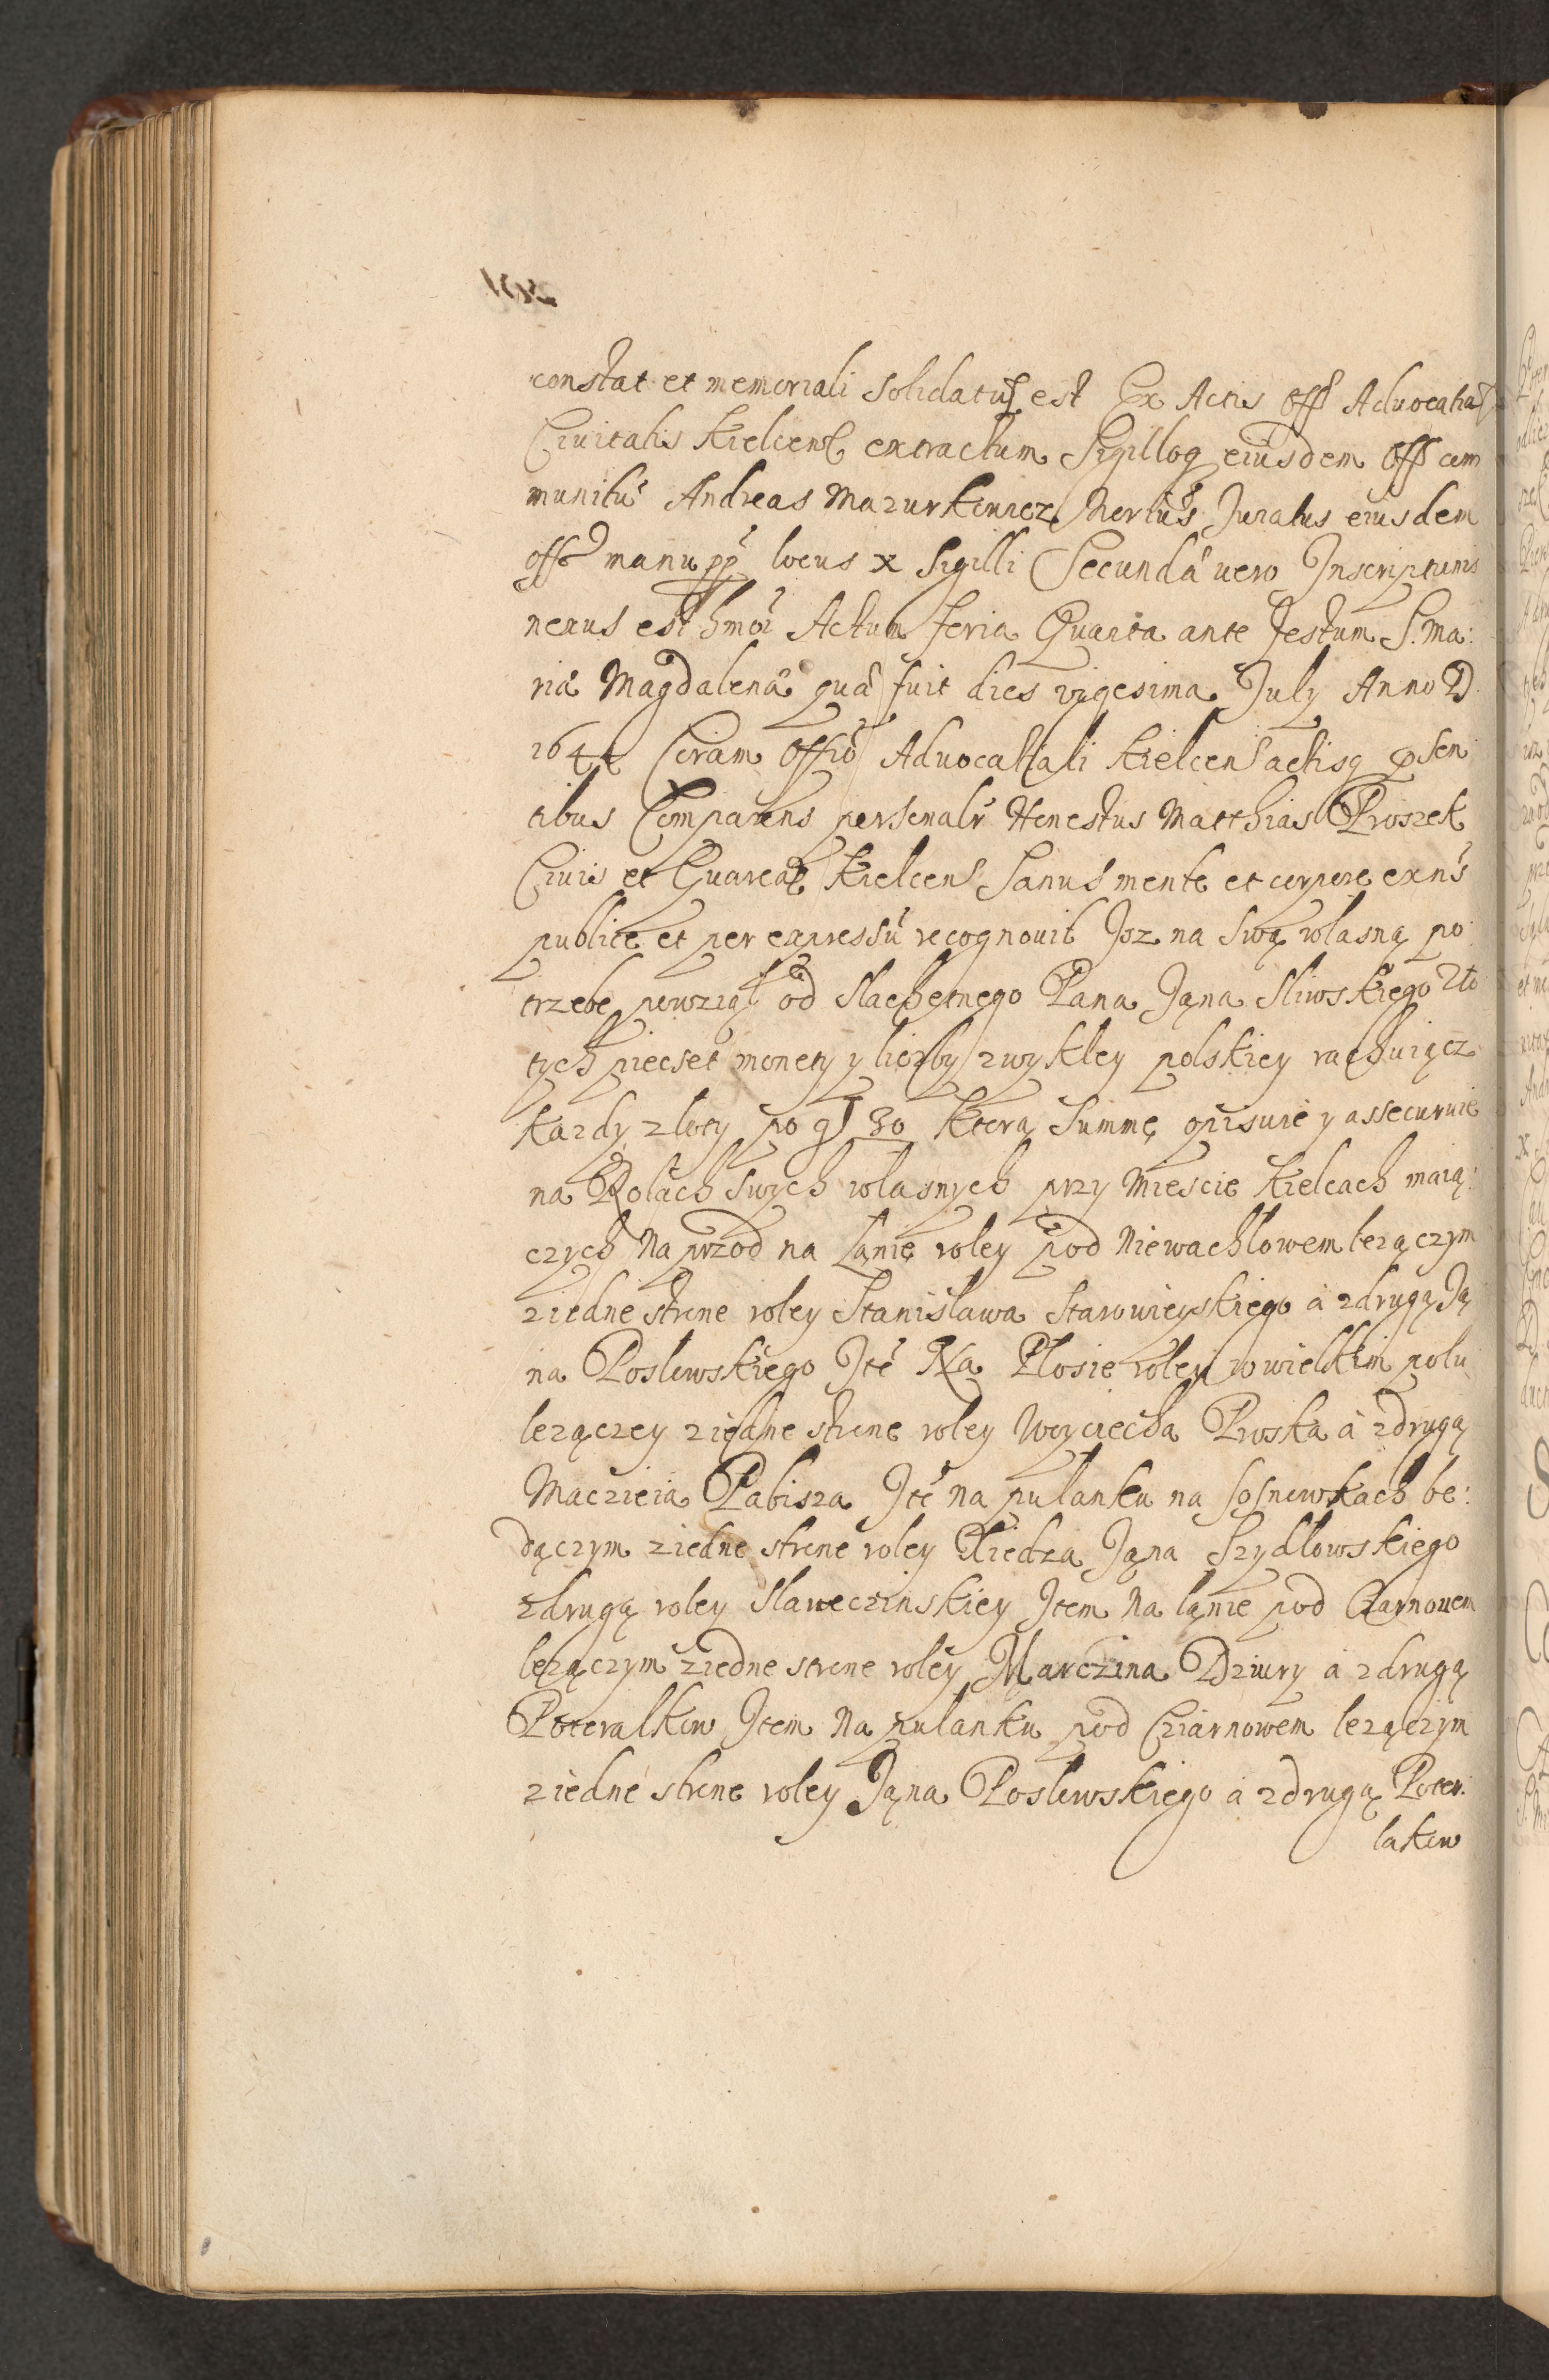 constat et memoriali solidatus est Ex Actis Off Advocatia
Civitatis Kielcens extractum Sigilloq eiusdem Off com
munitũ Andreas Mazurkiewicz Noriũs Juratus eiusdem
offo manu pp locus x Sigilli Secundâ vero Inscriptionis
nexus est hmõi Actum feria Quarta ante Festum S. Ma:
riâ Magdalenâ quâ fuit dies vigesima July Anno D
1644 Coram Offio Advocattali Kielcens actisq psen
tibus Comparens personalr Honestus Matthias Proszek
Civis et Kielcens Sanus mente et corpore exns
publice et per expressũ recognovit Isz na swą własną po
trzebę powziął od Slachetnego Pana Jąna Sliwskiego Zło
tych piecset monety y liczby zwykley polskiey rachuiącz
kazdy zloty po g 30 Ktorą Summę opisuie y assecuruie
na Rolach swych własnych przy Miescie Kielcach maią:
czych Na przod na Łąnie roley pod Niewachlowem lezączym
z iedne strone roley Stanisława Starowieyskiego à z drugą Ją
na Poslowskiego Itẽ Na Płosie roley w wielkim polu
lezączey z iedne strone roley Woyciecha Proska à z drugą
Maczieia Pabisza Itẽ na pulanku na Sosnowkach be:
dączym z iedne strone roley Jąna Szydłowskiego
z drugą roley Slaweczinskiey Item Na łąnie pod Czarnowem
lezączym z iedne strone roley Marczina Dziury a z drugą
Poteralkow Item Na pulanku pod Cziarnowem lezączym
z iedne strone roley Jąna Poslowskiego a z drugą Poter:
lakow